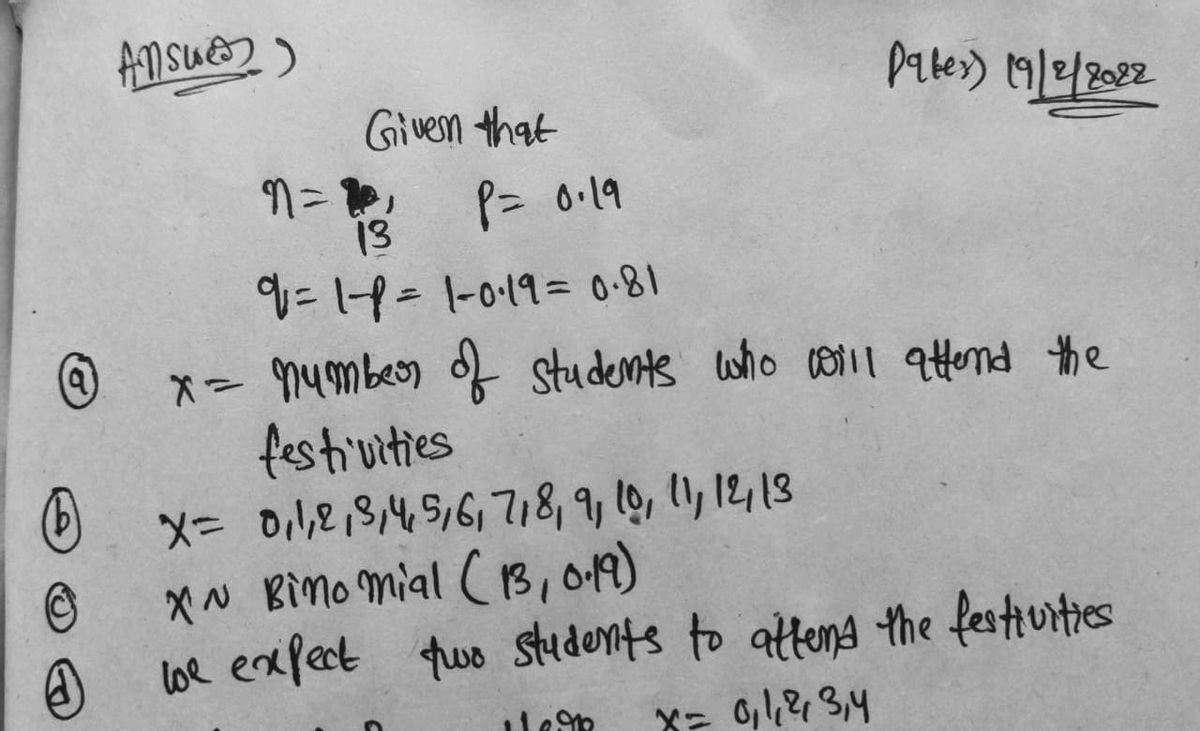 Answer)
Date:) 19/2/2022
Given that
n = 13, p = 0.19
q = 1-p = 1-0.19 = 0.81
(a) x = number of students who will attend the
festivities
(b) x = 0,1,2,3,4,5,6,7,8,9,10,11,12,13
(c) x ~ Binomial (13, 0.19)
(d) we expect two students to attend the festivities
x = 0,1,2,3,4